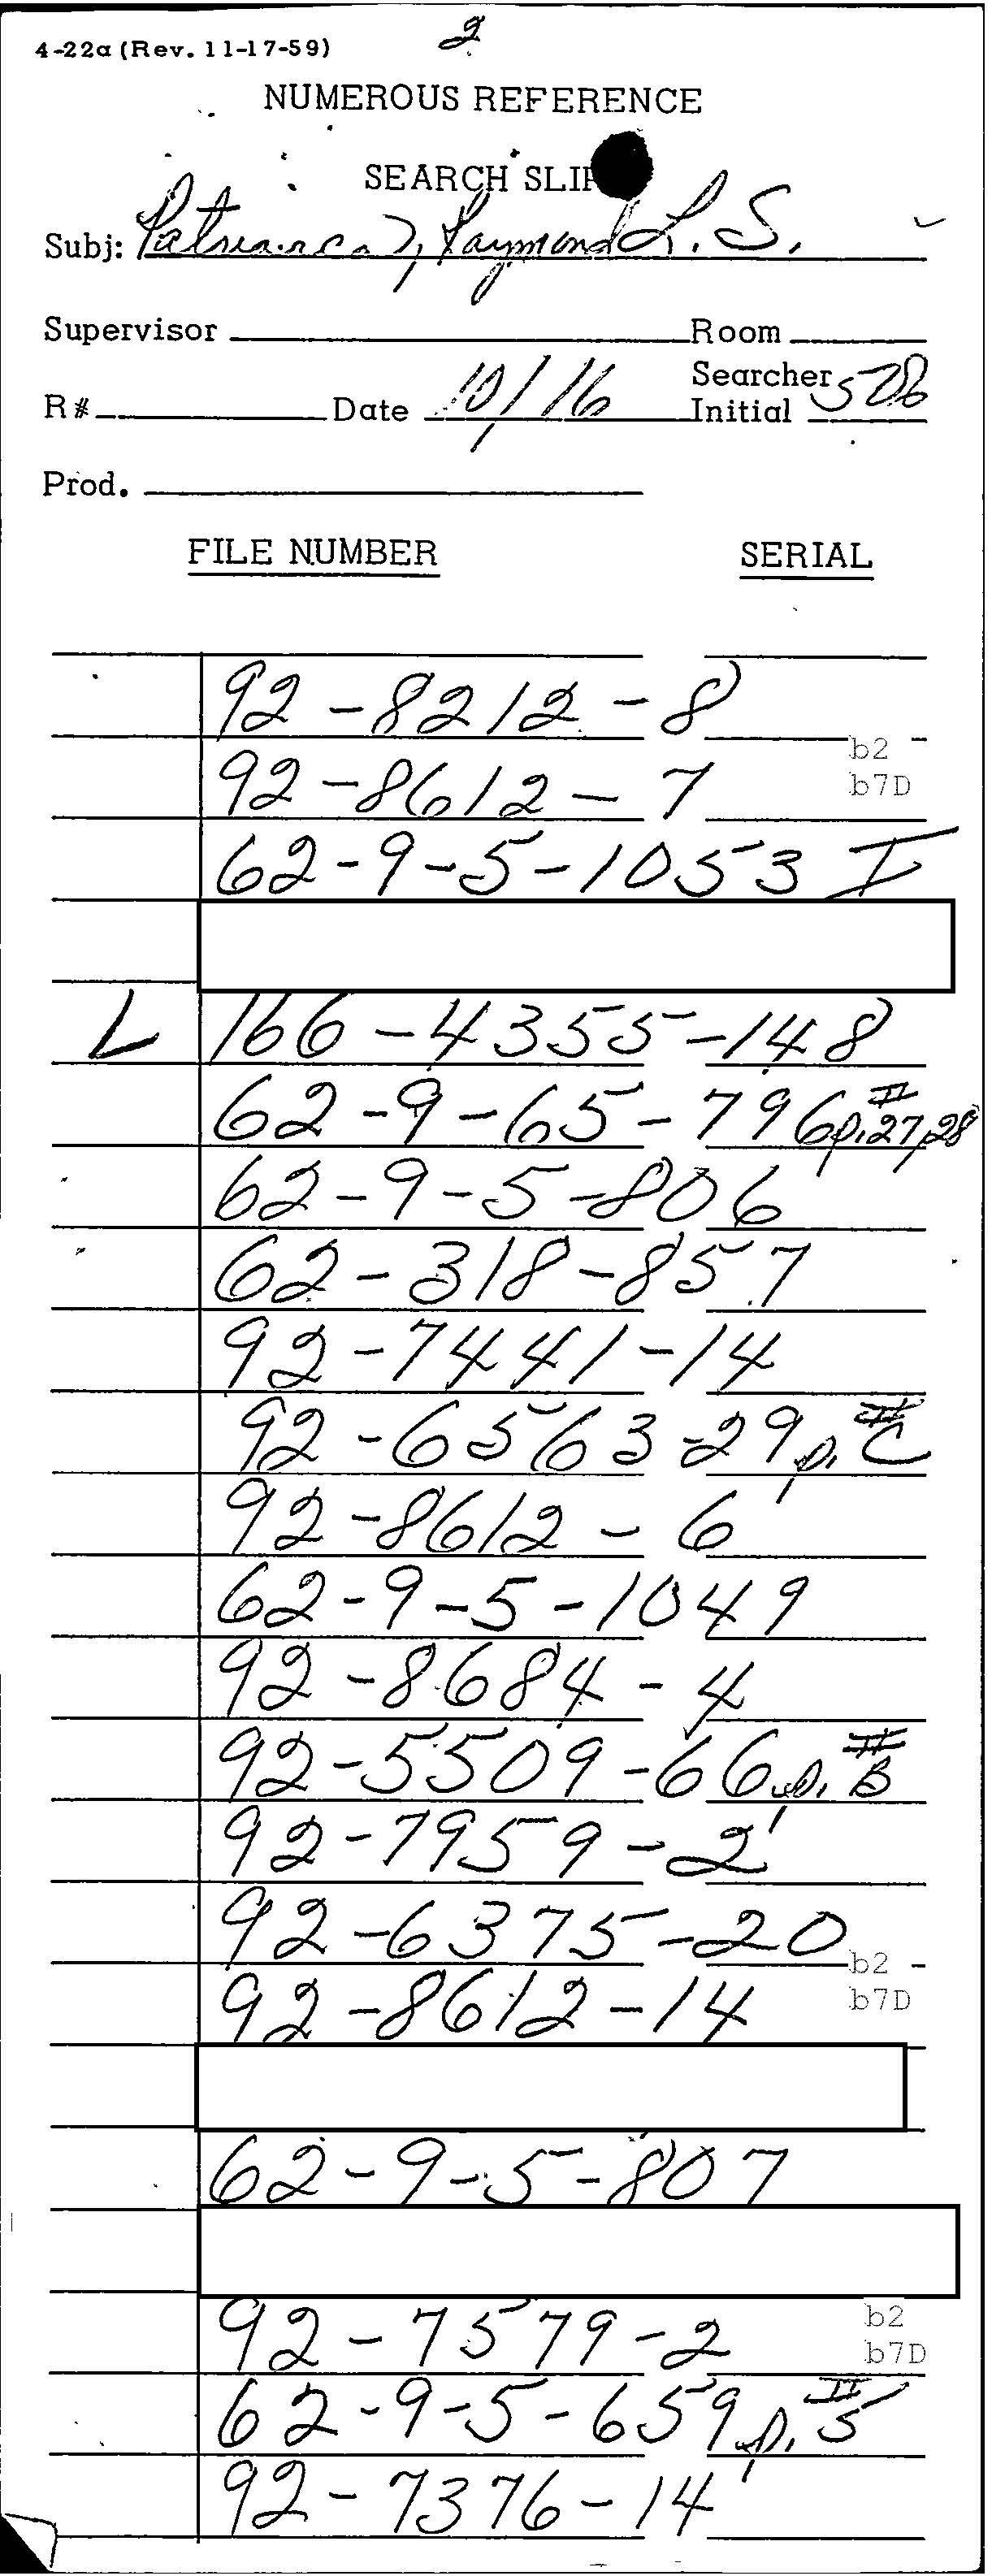 2
4-22a (Rev. 11-17-59)
NUMEROUS REFERENCE
SEARCH SLIP
Subj: Patriarca, Raymond L. S.
Supervisor Room
R# Date 10/16 Searcher Initial 526
Prod.
FILE NUMBER SERIAL
92-8212-8
b2
92-8612-7
b7D
62-9-5-1053 I
L 166-4355-148
62-9-65-796 p.27,28 II
62-9-5-806
62-318-857
92-7441-14
92-6563-29 p. C II
92-8612-6
62-9-5-1049
92-8684-4
92-5509-66 p. B II
92-7959-2
92-6375-20
b2
92-8612-14
b7D
62-9-5-807
b2
92-7579-2
b7D
62-9-5-659 p. 5 II
92-7376-14